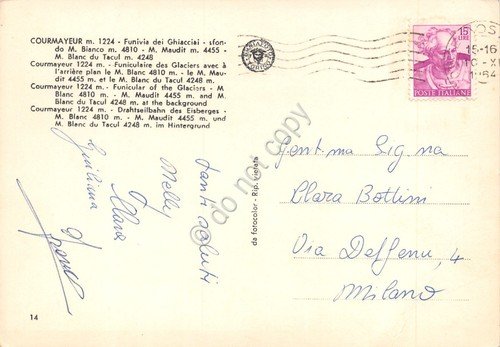 COURMAYEUR m. 1224 - Funivia dei Ghiacciai - sfon-
do M. Bianco m. 4810 - M. Maudit m. 4455 -
M. Blanc du Tacul m. 4248
Courmayeur 1224 m. - Funiculaire des Glaciers avec à
l'arrière plan le M. Blanc 4810 m. - le M. Mau-
dit 4455 m. et le M. Blanc du Tacul 4248 m.
Courmayeur 1224 m. - Funicular of the Glaciers - M.
Blanc 4810 m. - M. Maudit 4455 m. and M.
Blanc du Tacul 4248 m. at the background
Courmayeur 1224 m. - Drahtseilbahn des Eisberges -
M. Blanc 4810 m. - M. Maudit 4455 m. und
M. Blanc du Tacul 4248 m. im Hintergrund
15 LIRE
POSTE ITALIANE
15-16
1964
da fotocolor - Rip. vietata
do not copy
tanti saluti
Nelly
Clara
Giuliana
Gent.ma Sig.na
Clara Bottini
Via Deffenu, 4
Milano
14